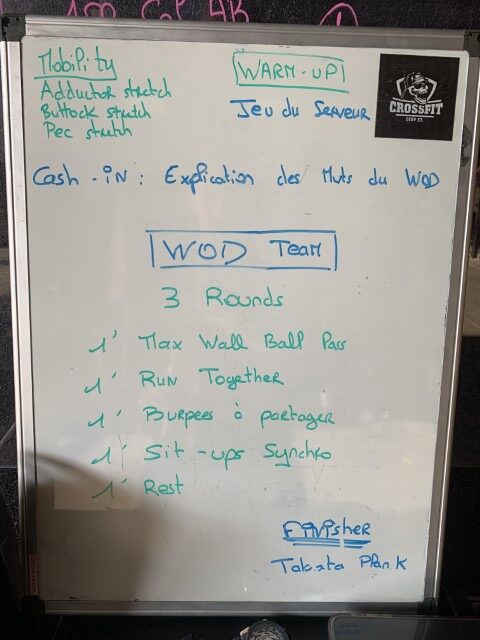 Mobility
Adductor stretch
Buttock stretch
Pec stretch
WARM-UP
Jeu du Serveur
CROSSFIT
Cash-in : Explication des Mvts du WOD
WOD Team
3 Rounds
1' Max Wall Ball Pass
1' Run Together
1' Burpees à partager
1' Sit-ups Synchro
1' Rest
Finisher
Tabata Plank